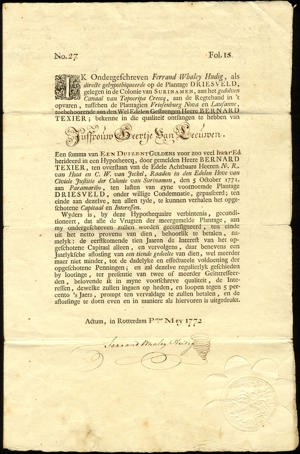 No. 27 Fol. 18
IK Ondergeschreven Ferrand Whaley Hudig, als
directie gelegentheid op de Plantage DRIESVELD,
gelegen in de Colonie van SURINAMEN, aan het gedolven
Canaal van Taporipa Creecq, aan de Regterhand in 't
opvaren, tusschen de Plantagien Freijenburg Nova en Lausanne
toebehoorende aan den Wel Edelen Gestrengen Heere BERNARD
TEXIER; bekenne in die qualiteit ontfangen te hebben van
Juffrouw Geertje Van Leeuwen.
Een somma van EEN DUISENT GULDENS voor zoo veel hun Ed
herideerd in een Hypothecq, door gemelden Heere BERNARD
TEXIER, ten overstaan van de Edele Achtbaare Heeren
van Hout en C. W. van Jeckel, Raaden in den Edelen Hove van
Civiele Justitie der Colonie van Surinamen, den 5 October 1771.
aan Paramaribo, ten lasten van zyne voornoemde Plantage
DRIESVELD, onder willige Condemnatie, gepasseert; ten
einde aan dezelve, ten allen tyde, te kunnen verhalen het opge-
schotene Capitaal en Interessen.
Wyders is, by deze Hypothequaire verbintenis, gecondi-
tioneert, dat alle de Vrugten der meergemelde Plantage, aan
my ondergeschreven zullen worden geconsigneert, ten einde
uit het netto provenu van dien, behoorlyk te betalen, na-
melyk: de eerstkomende tien Jaaren de Interest van het opge-
schotene Capitaal alleen, en vervolgens, daar benevens een
Jaarlyksche aflossing van een tiende gedeelte van dien, wel meerder
maar niet minder, tot de dadelyke en effectueele voldoening der
opgeschotene Penningen; en zal dezelve regulierlyk geschieden
by lootinge, ter presentie van twee of meerder Geintresseer-
den, belovende ik in myne voorschreve qualiteit, de Inte-
ressen, dewelke zullen ingaan op heden, en loopen tegen 5 per-
cento 's Jaers, prompt ten vervaldage te zullen betalen, en de
aflossinge te doen even en in maniere als hiervoren is uitgedrukt.
Actum, in Rotterdam Pmo Mey 1772
Ferrand Whaley Hudig